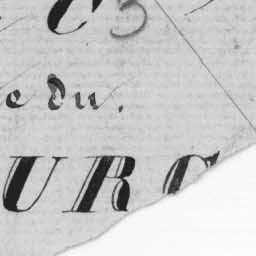 C 3
e du.
URG